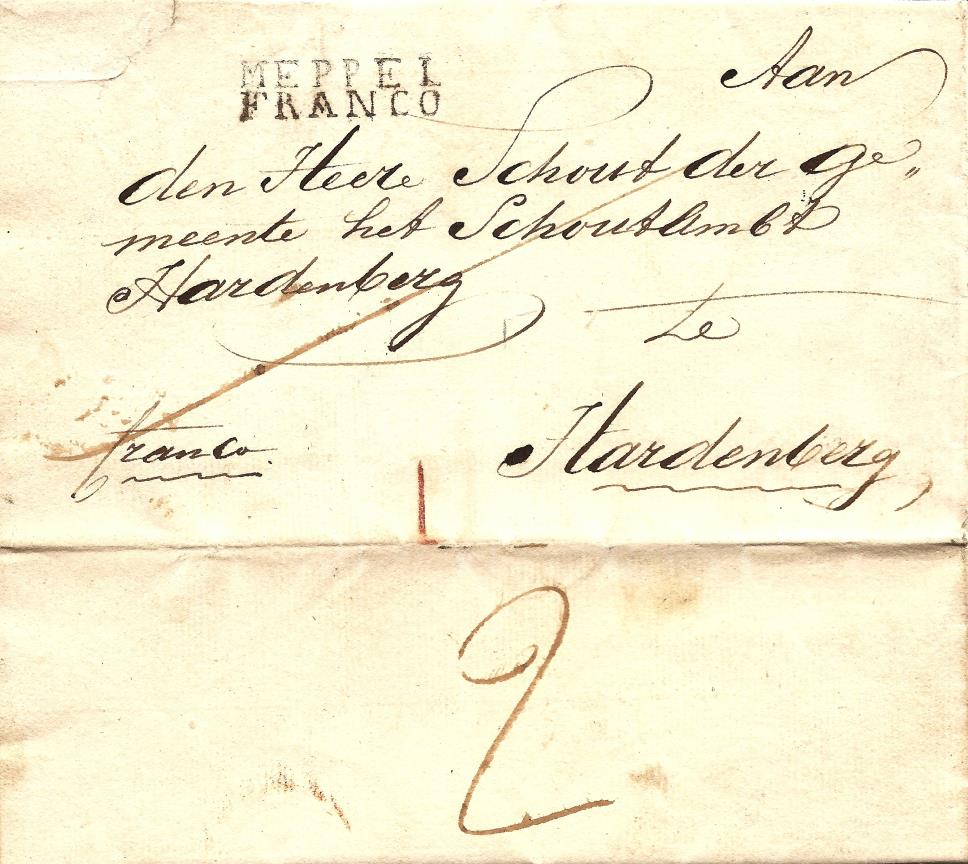 MEPPEL
FRANCO
Aan
den Heere Schout der Ge„
meente het SchoutAmbt
Hardenberg
te
franco.
Hardenberg,
2